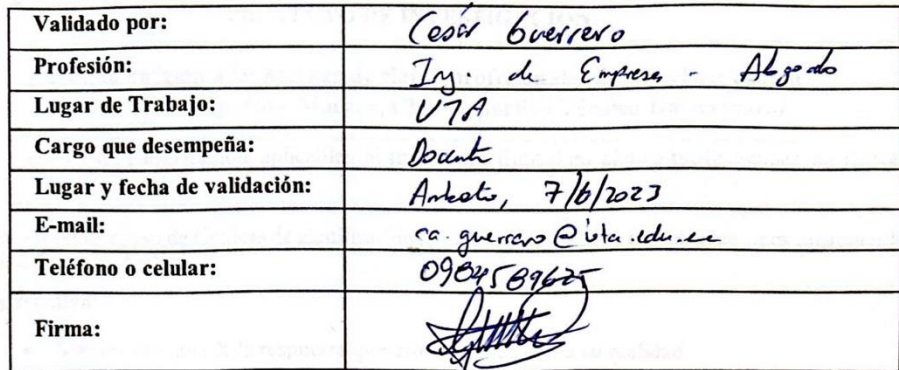 Validado por: César Guerrero
Profesión: Ing. de Empresas - Abogado
Lugar de Trabajo: UTA
Cargo que desempeña: Docente
Lugar y fecha de validación: Ambato, 7/6/2023
E-mail: ca.guerrero@uta.edu.ec
Teléfono o celular: 0984589625
Firma: